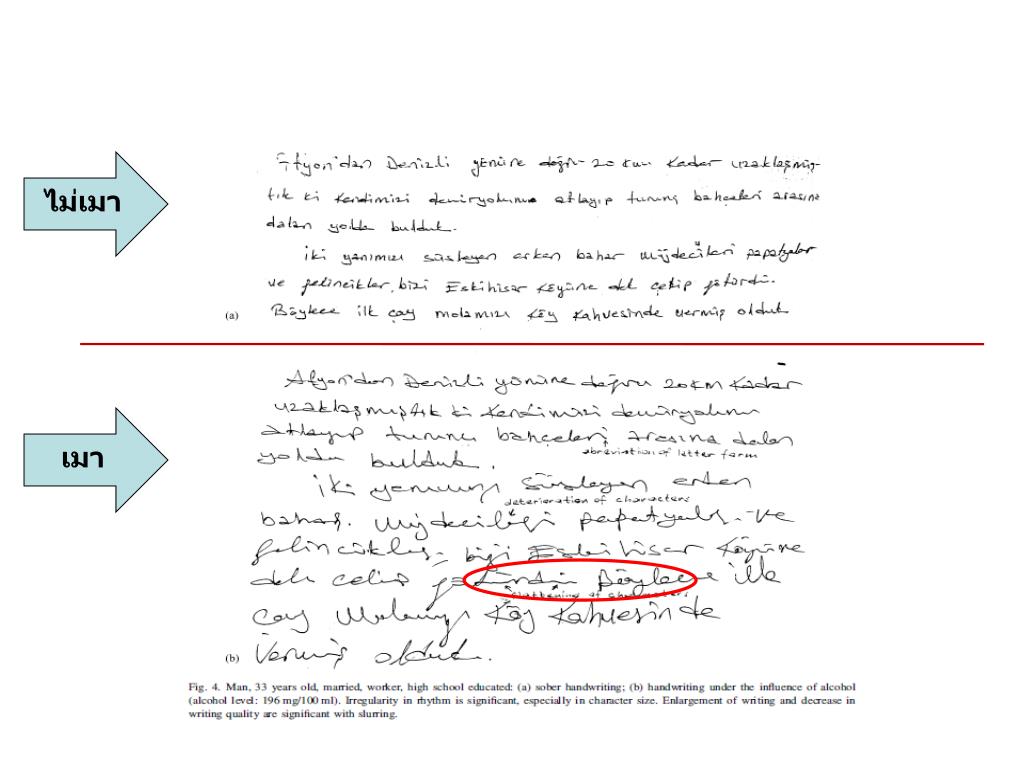 ไม่เมา
Afyon'dan Denizli yönüne doğru 20 km kadar uzaklaşmış-
tık ki kendimizi demiryolunu atlayıp turunç bahçeleri arasına
dalan yolda bulduk.
iki yanımızı süsleyen erken bahar müjdecileri papatyalar
ve gelincikler, bizi Eskihisar köyüne dek çekip götürdü.
(a) Böylece ilk çay molamızı köy kahvesinde vermiş olduk
Afyon'dan Denizli yönüne doğru 20 km kadar
uzaklaşmıştık ki kendimizi demiryolunu
atlayıp turunç bahçeleri arasına dalan
abreviation of letter form
เมา
yolda bulduk.
iki süsleyen erken
deterioration of characters
bahar. papatyalar ve
bizi Eskihisar köyüne
dek Böylece ilk
flattening of characters
çay köy kahvesinde
(b) Vermiş olduk.
Fig. 4. Man, 33 years old, married, worker, high school educated: (a) sober handwriting; (b) handwriting under the influence of alcohol
(alcohol level: 196 mg/100 ml). Irregularity in rhythm is significant, especially in character size. Enlargement of writing and decrease in
writing quality are significant with slurring.